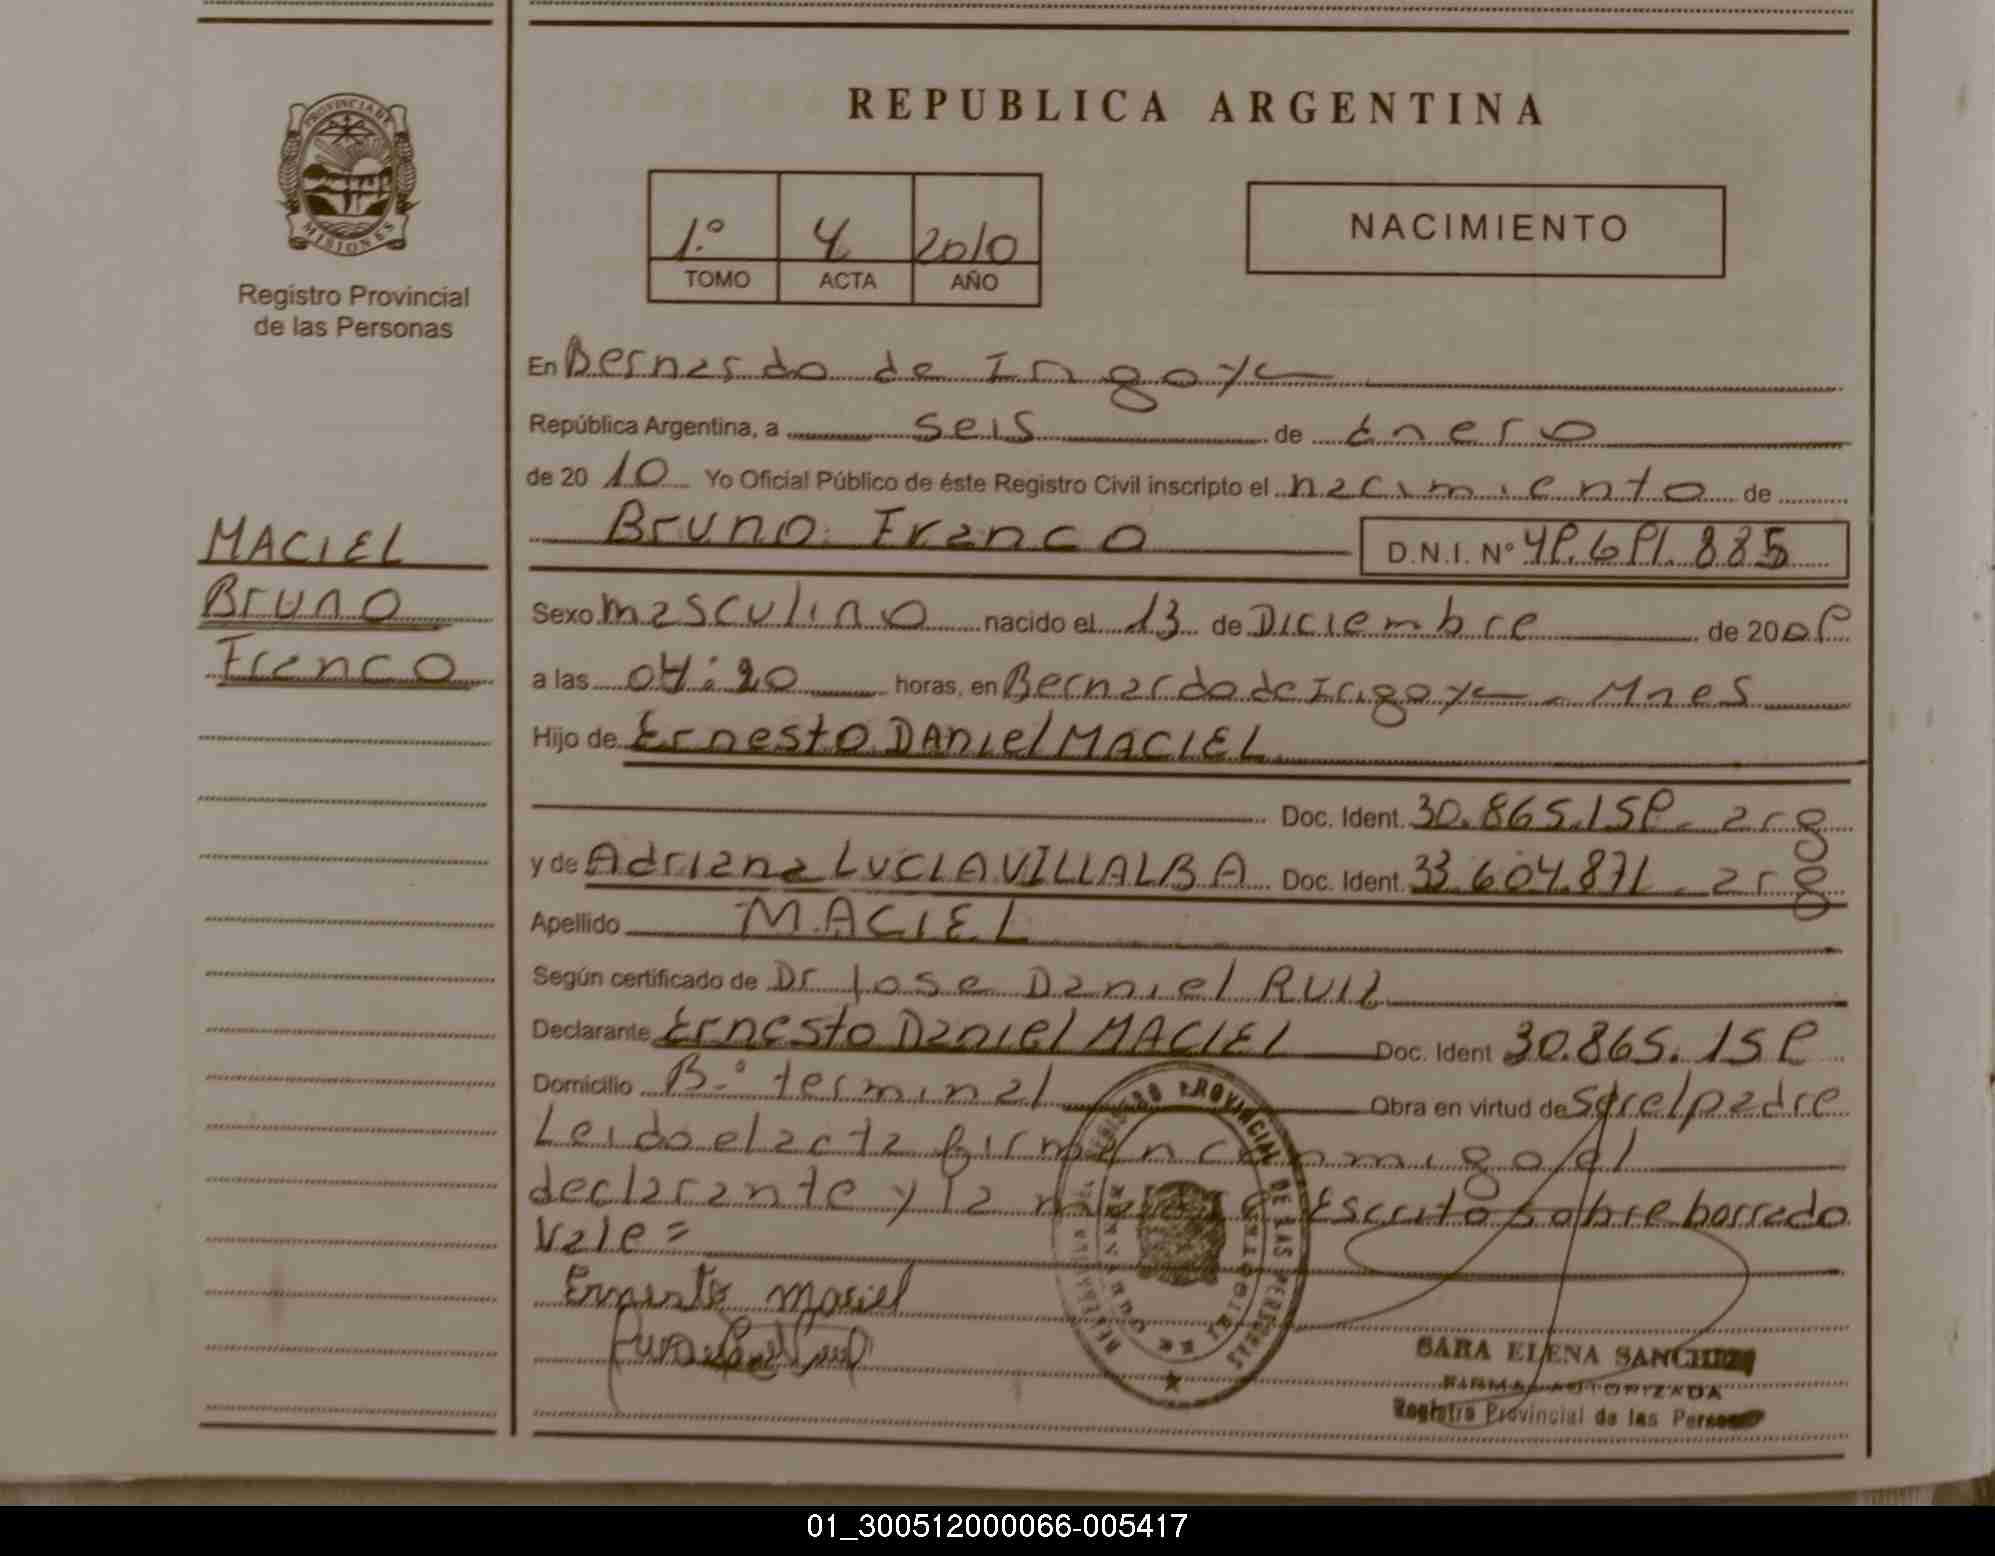 PROVINCIA DE
MISIONES
Registro Provincial
de las Personas
MACIEL
Bruno
Franco
REPUBLICA ARGENTINA
1º 4 2010
TOMO ACTA AÑO
NACIMIENTO
En Bernardo de Irigoyen
República Argentina, a seis de Enero
de 2010 Yo Oficial Público de éste Registro Civil inscripto el nacimiento de
Bruno Franco D.N.I. Nº 49.691.885
Sexo masculino nacido el 13 de Diciembre de 2009
a las 04:20 horas, en Bernardo de Irigoyen - Mnes
Hijo de Ernesto DANiel MACIEL
Doc. Ident. 30.865.159 - arg
y de Adriana LUCIA VILLALBA Doc. Ident. 33.604.871 - arg
Apellido MACIEL
Según certificado de Dr Jose Daniel RUIZ
Declarante Ernesto Daniel MACIEL Doc. Ident 30.865.159
Domicilio Bº terminal Obra en virtud de ser el padre
Leido el acta firman conmigo el
declarante y la madre Escrito sobre borrado
Vale =
Ernesto Maciel
REGISTRO PROVINCIAL DE LAS PERSONAS
SARA ELENA SANCHEZ
FIRMA AUTORIZADA
Registro Provincial de las Personas
01_300512000066-005417